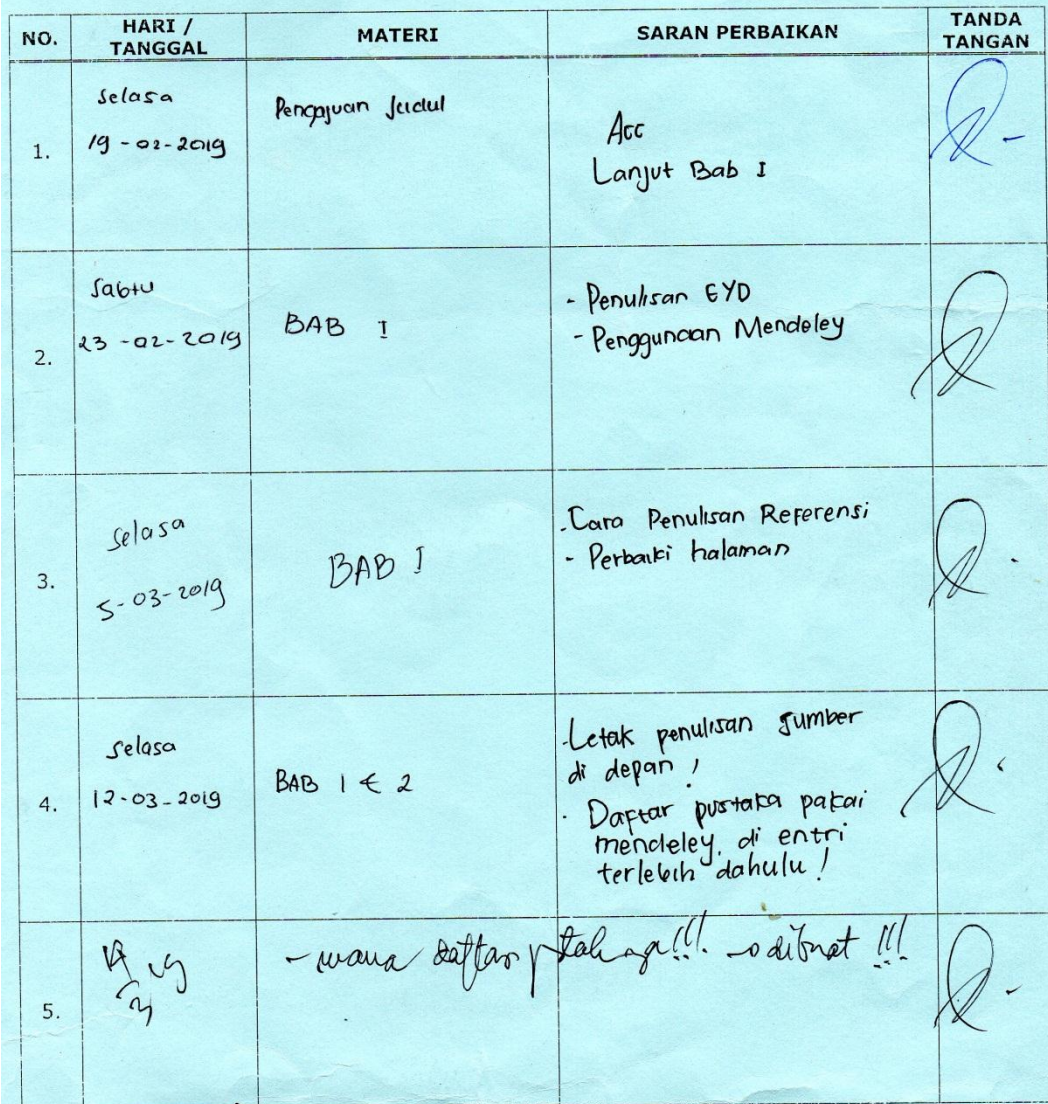 NO. HARI / TANGGAL MATERI SARAN PERBAIKAN TANDA TANGAN
1.
Selasa
19-02-2019
Pengajuan Judul
Acc
Lanjut Bab I
2.
Sabtu
23-02-2019
BAB I
- Penulisan EYD
- Penggunaan Mendeley
3.
Selasa
5-03-2019
BAB I
- Cara Penulisan Referensi
- Perbaiki halaman
4.
Selasa
12-03-2019
BAB 1 & 2
- Letak penulisan sumber
di depan !
- Daftar pustaka pakai
mendeley, di entri
terlebih dahulu !
5.
- mana daftar !!! dibuat !!!